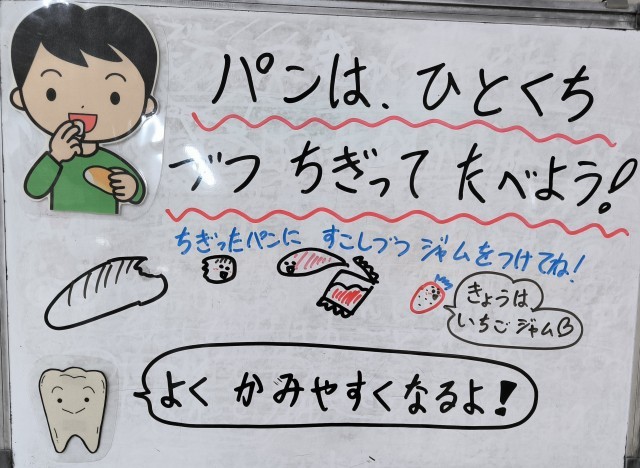 パンは、ひとくち
ずつ ちぎって たべよう!
ちぎったパンに すこしづつ ジャムをつけてね!
きょうは
いちごジャム
よく かみやすくなるよ!